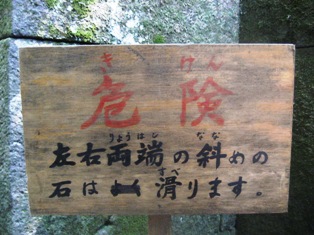 きけん
危険
りょうはし なな
左右両端の斜めの
すべ
石は 滑ります。